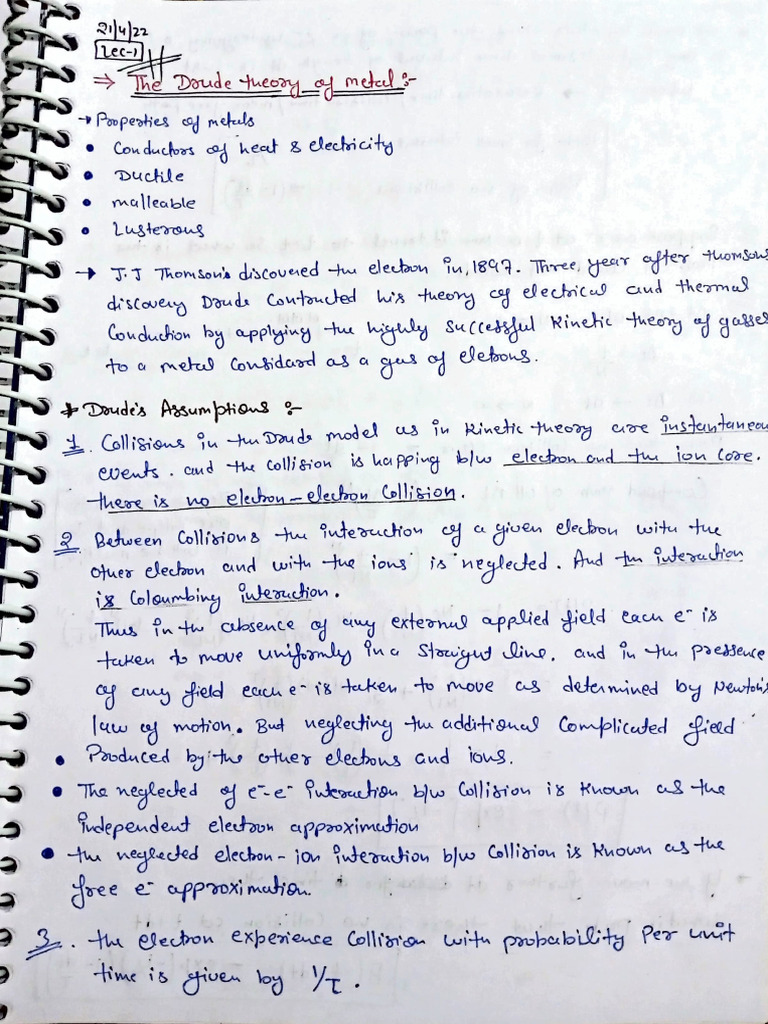 21/4/22
Lec-1
⇒ The Drude theory of metal :-
→ Properties of metals
• Conductors of heat & electricity
• Ductile
• malleable
• Lusterous
→ J.J Thomson's discovered the electron in, 1897. Three, year after thomsons
discovery Drude Contructed his theory of electrical and thermal
Conduction by applying the highly successful Kinetic theory of gasses
to a metal Considard as a gas of eletrons.
* Drude's Assumptions :-
1. Collisions in the Drude model as in Kinetic theory are instantaneou
events. and the collision is happing b/w electron and the ion Core.
there is no electron-electron Collision.
2. Between Collisions the interaction of a given electron with the
other electron and with the ions is neglected. And the interaction
is Coloumbing interaction.
Thus in the absence of any external applied field each e⁻ is
taken to move uniformly in a straight line. and in the pressence
of any field each e⁻ is taken to move as determined by Newton's
law of motion. But neglecting the additional complicated field
• Produced by the other electrons and ions.
• The neglected of e⁻-e⁻ interaction b/w Collision is Known as the
independent electron approximation
• the neglected electron-ion interaction b/w Collision is Known as the
free e⁻ approximation.
3. the electron experience Collision with probability Per unit
time is given by 1/τ.